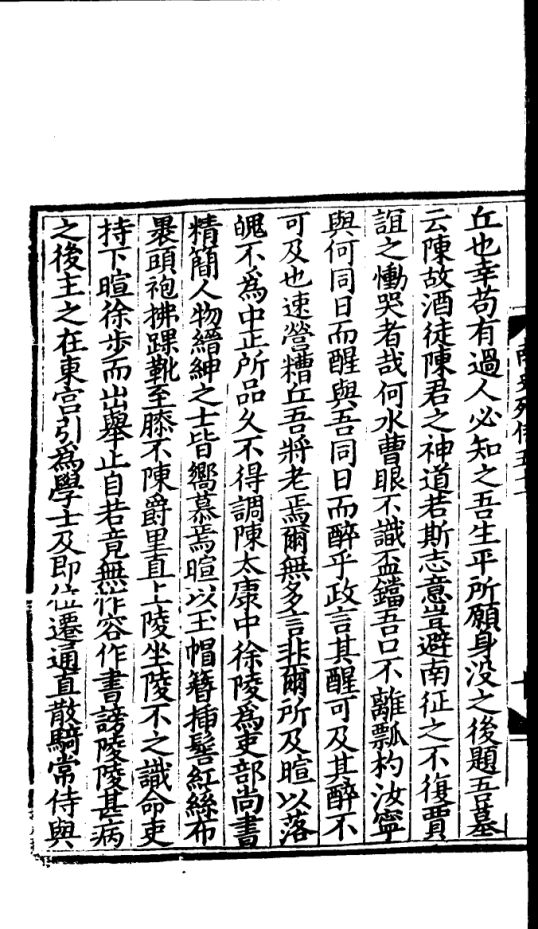 丘也幸苟有過人必知之吾生平所願身没之後題吾墓
云陳故酒徒陳君之神道若斯志意豈避南征之不復賈
誼之慟哭者哉何水曹眼不識盃鐺吾口不離瓢杓汝寧
與何同日而醒與吾同日而醉乎政言其醒可及其醉不
可及也速營糟丘吾將老焉爾無多言非爾所及暄以落
魄不爲中正所品久不得調陳太康中徐陵爲吏部尚書
精簡人物縉紳之士皆嚮慕焉暄以玉帽簪揷髻紅絲布
褁頭袍拂踝靴至膝不陳爵里直上陵坐陵不之識命吏
持下暄徐步而出舉止自若竟無怍容作書謗陵陵甚病
之後主之在東宫引爲學士及即位遷通直散騎常侍與